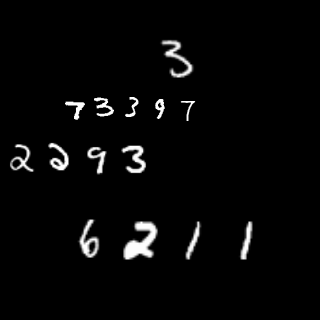 3
7 3 3 9 7
2 2 9 3
6 2 1 1